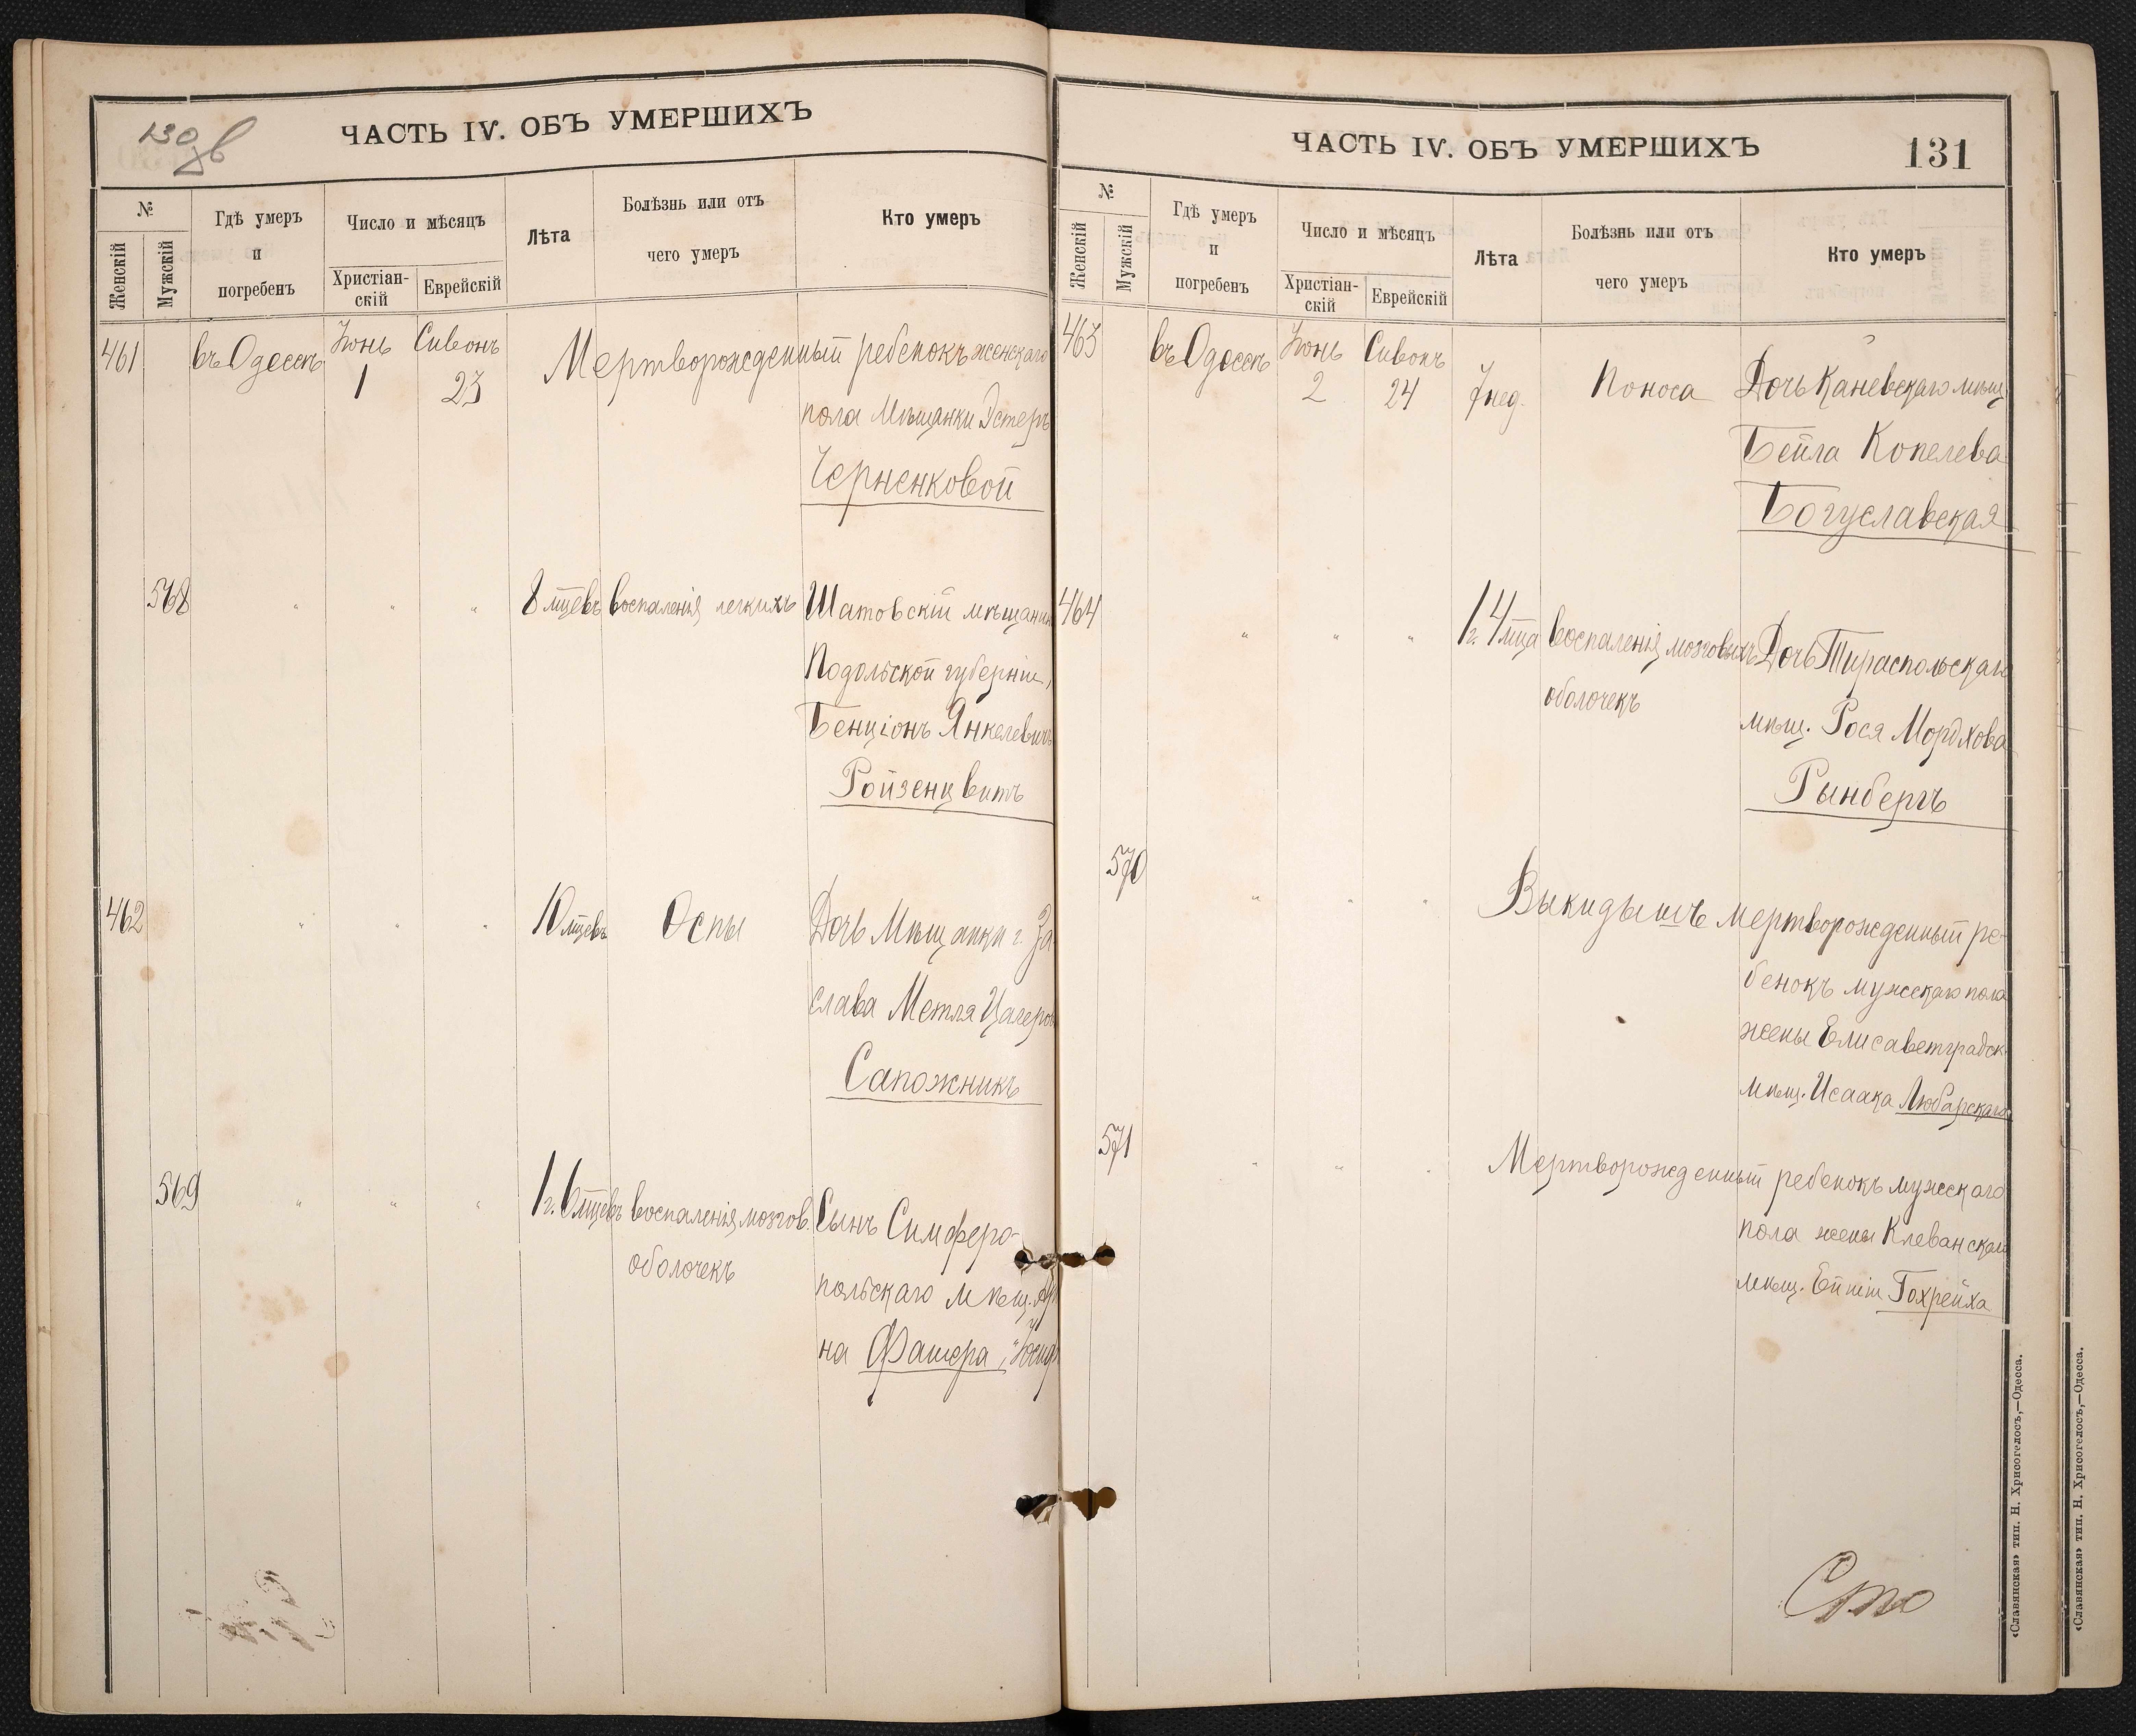 130 об
ЧАСТЬ IV. ОБЪ УМЕРШИХЪ
№
Женскій
Мужскій
Гдѣ умеръ
и
погребенъ
Число и мѣсяцъ
Христіан-
скій
Еврейскій
Лѣта
Болѣзнь или отъ
чего умеръ
Кто умеръ
461 въ Одессѣ Іюнь Сивонъ Мертворожденный ребенокъ женскаго
1 23 пола Мѣщанки Эстеръ
Черненковой
568 " " " 8 мцевъ воспаленія легкихъ Шатовскій мѣщанинъ
Подольской губерніи,
Бенціонъ Янкелевичъ
Ройзенцвитъ
462 " " " 10 мцевъ Оспы Дочь Мѣщанки г. За-
слава Метля
Сапожникъ
569 " " " 1 г. 6 мцевъ воспаленія мозгов. Сынъ Симферо-
оболочекъ польскаго мѣщ.
на Фашера,
ЧАСТЬ IV. ОБЪ УМЕРШИХЪ
131
№
Женскій
Мужскій
Гдѣ умеръ
и
погребенъ
Число и мѣсяцъ
Христіан-
скій
Еврейскій
Лѣта
Болѣзнь или отъ
чего умеръ
Кто умеръ
463 въ Одессѣ Іюнь Сивонъ 7 нед. Поноса Дочь Каневскаго мѣщ.
2 24
Бейла Копелева
Богуславская
464 " " " 1 г. 4 мца воспаленія мозговыхъ Дочь Тираспольскаго
оболочекъ мѣщ. Рося Мордхова
Рынбергъ
570 " " " Выкидышъ мертворожденный ре-
бенокъ мужескаго пола
жены Елисаветградск.
мѣщ. Исаака Любарскаго
571 " " " Мертворожденный ребенокъ мужескаго
пола жены Клеванскаго
мѣщ. Гохрейха
«Славянская» тип. Н. Хрисогелосъ,—Одесса.
«Славянская» тип. Н. Хрисогелосъ,—Одесса.